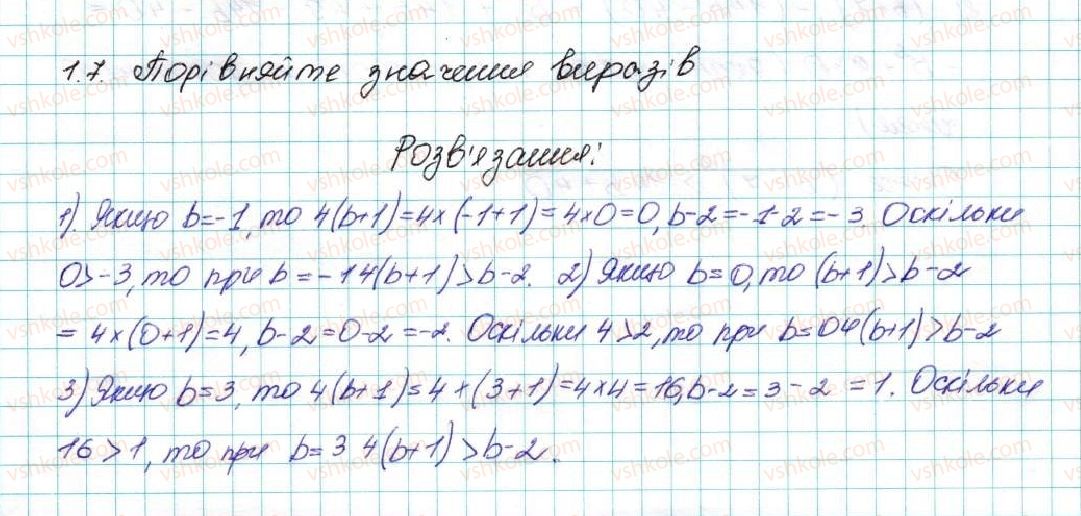 1.7. Порівняйте значення виразів
Розв'язання:
1). Якщо b=-1, то 4(b+1)=4×(-1+1)=4×0=0, b-2=-1-2=-3. Оскільки
0>-3, то при b=-1 4(b+1)>b-2. 2) Якщо b=0, то (b+1)>b-2
=4×(0+1)=4, b-2=0-2=-2. Оскільки 4>2, то при b=0 4(b+1)>b-2
3) Якщо b=3, то 4(b+1)=4×(3+1)=4×4=16, b-2=3-2=1. Оскільки
16>1, то при b=3 4(b+1)>b-2.